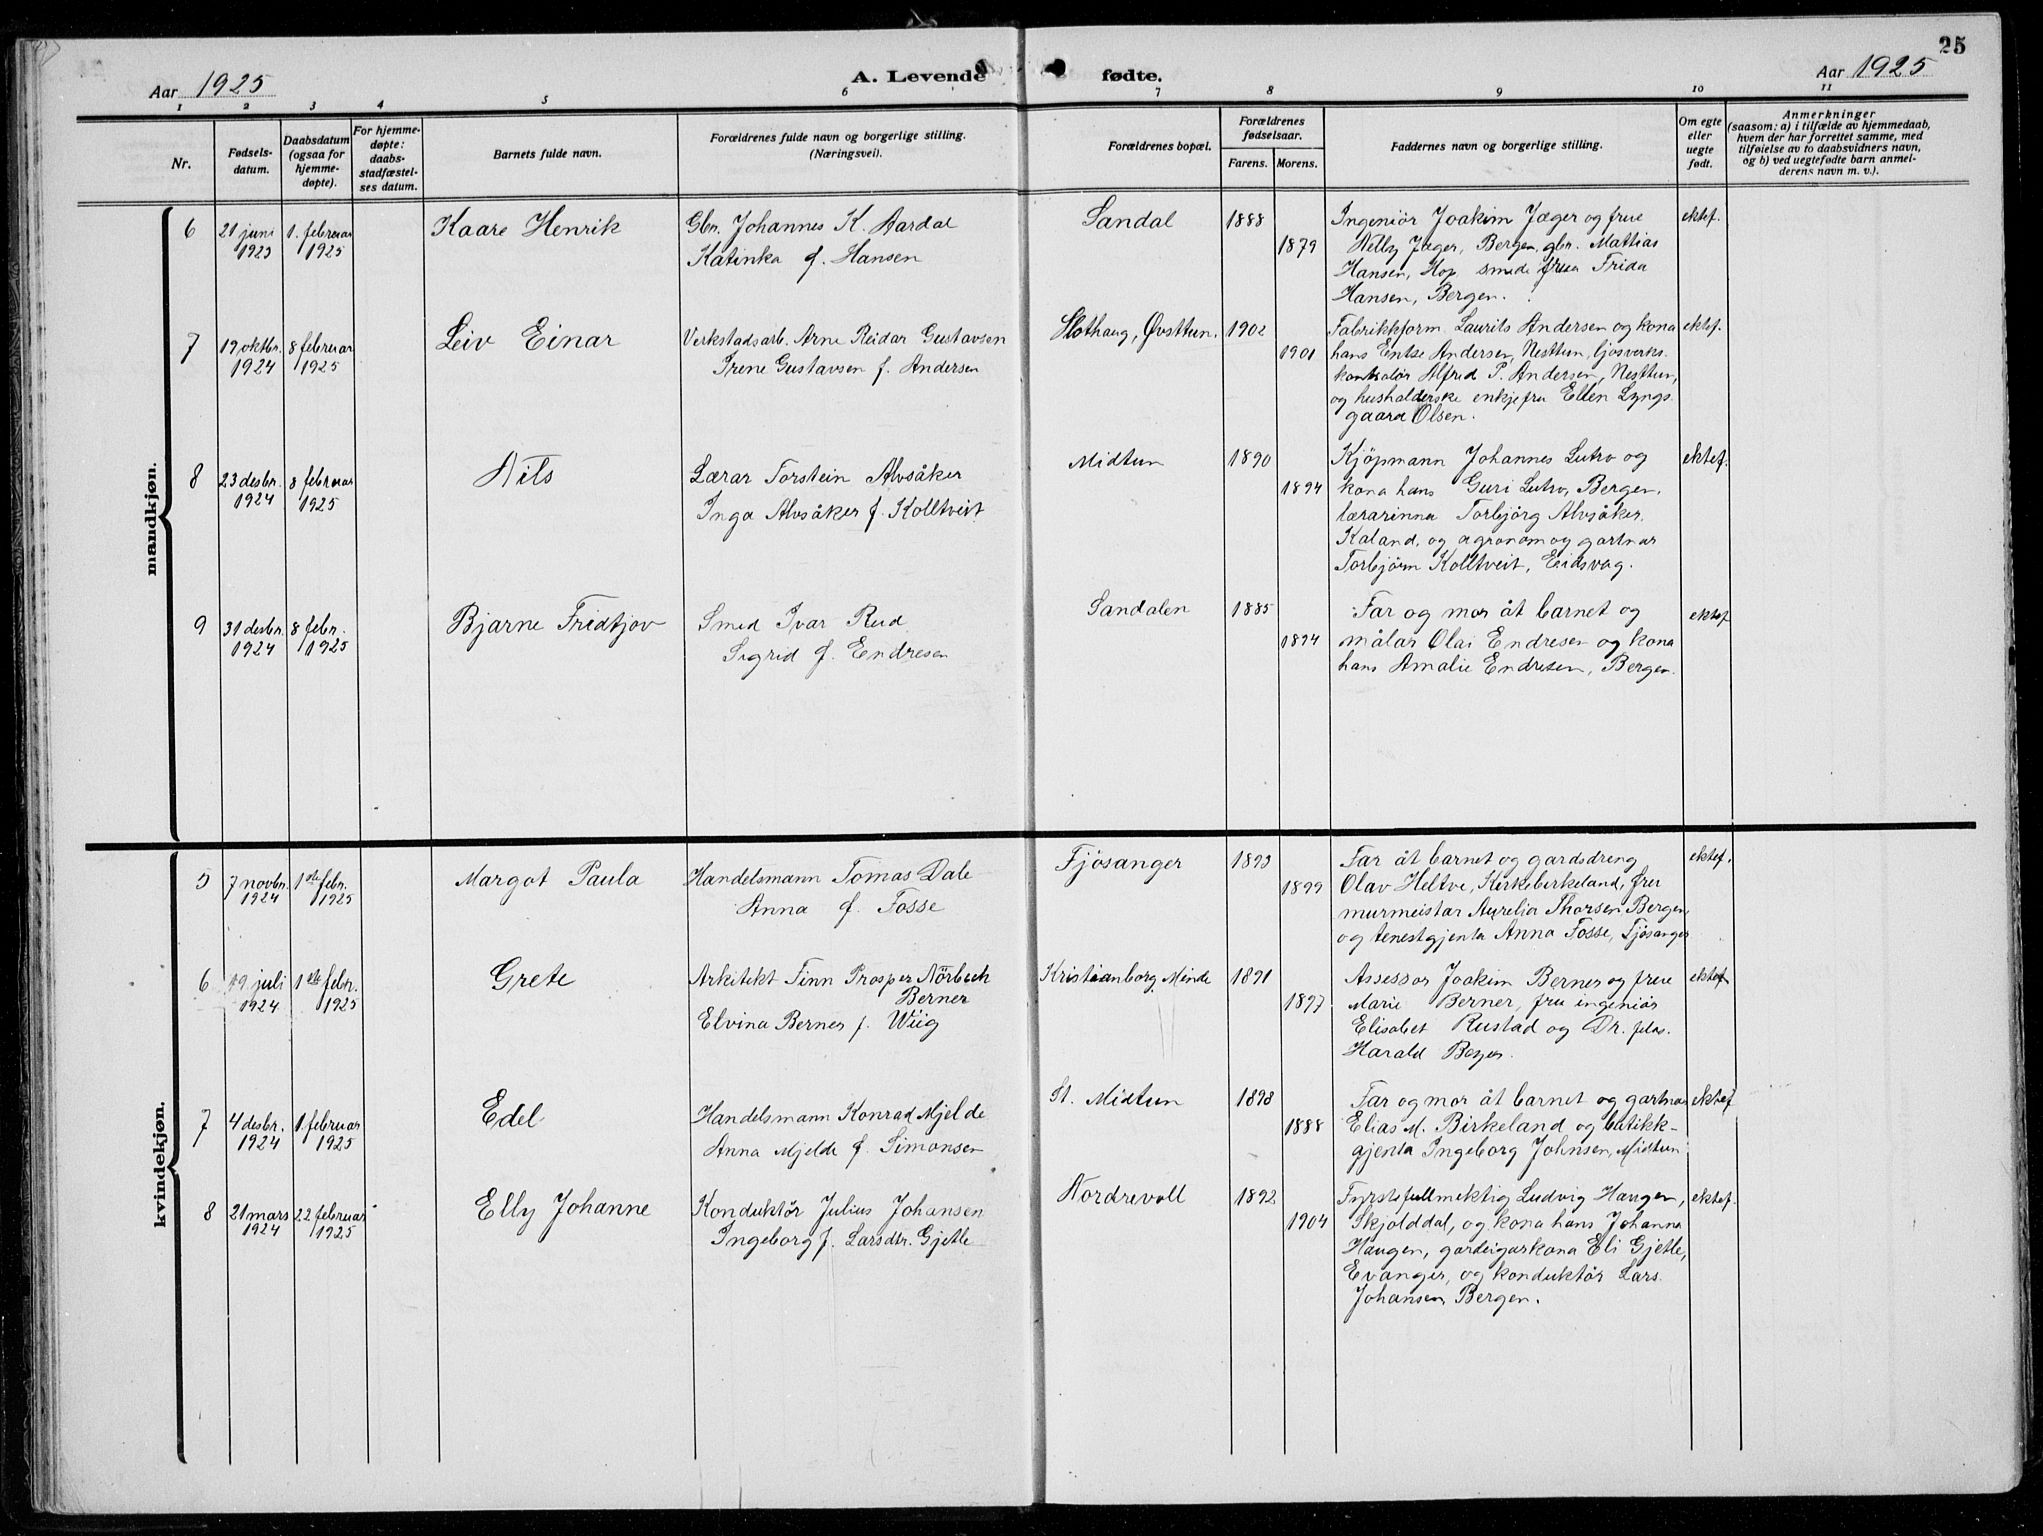 25
Aar 1925 A. Levende fødte. Aar 1925
1 2 3 4 5 6 7 8 9 10 11
Nr.
Fødsels-
datum.
Daabsdatum
(ogsaa for
hjemme-
døpte).
For hjemme-
døpte:
daabs-
stadfæstel-
ses datum.
Barnets fulde navn.
Forældrenes fulde navn og borgerlige stilling.
(Næringsvei).
Forældrenes bopæl.
Forældrenes
fødselsaar.
Farens. Morens.
Faddernes navn og borgerlige stilling.
Om egte
eller
uegte
født.
Anmerkninger
(saasom: a) i tilfælde av hjemmedaab,
hvem der har forrettet samme, med
tilføielse av to daabsvidners navn,
og b) ved uegtefødte barn anmel-
derens navn m. v.).
mandkjøn.
6
21 juni
1923
1. februar
1925
Kaare Henrik
Gbr. Johannes K. Aardal
Katinka f. Hansen
Sandal
1888
1879
Ingeniør Joakim Jæger og frue
Nelly Jæger, Bergen, gbr. Mattias
Hansen, Hop, smed frua Frida
Hansen, Bergen.
ektef.
7
19 oktbr.
1924
8 februar
1925
Leiv Einar
Verkstadsarb. Arne Reidar Gustavsen
Irene Gustavsen f. Andersen
Slothaug, Øvsttun.
1902
1901
Fabrikkform. Laurits Andersen og kona
hans Andersen, Nesttun, ljosverks-
kontrolør Alfred P. Andersen, Nesttun,
og husholderske enkjefru Ellen Lyngs-
gaard Olsen.
ektef.
8
23 desbr.
1924
8 februar
1925
Nils
Lærar Torstein Alvsåker
Inga Alvsåker f. Kolltveit
Midtun
1890
1894
Kjøpmann Johannes Lutro og
kona hans Guri Lutro, Bergen,
lærarinna Torbjørg Alvsåker,
Kaland, og agronom og gartnar
Torbjørn Kolltveit, Eidsvag.
ektef.
9
31 desbr.
1924
8 febr.
1925
Bjarne Fridtjov
Smed Ivar Reid
Sigrid f. Endresen
Sandalen
1885
1894
Far og mor åt barnet og
målar Olai Endresen og kona
hans Amalie Endresen, Bergen.
ektef
kvindekjøn.
5
7 novbr.
1924
1ste febr.
1925
Margot Paula
Handelsmann Tomas Dale
Anna f. Fosse
Fjøsanger
1893
1899
Far åt barnet og gardsdreng
Olav Heltve, Kirkebirkeland, fru
murmeistar Aurelia Thorsen, Bergen,
og tenestgjenta Anna Fosse, Fjøsanger
ektef.
6
19 juli
1924
1ste febr.
1925
Grete
Arkitekt Finn Prosper Nørbech
Berner
Elvina Berner f. Wiig
Kristianborg, Minde
1891
1897
Assessor Joakim Berner og frue
Marie Berner, fru ingeniør
Elisabet Rustad og Dr. filos.
Harald Beyer.
ektef
7
4 desbr.
1924
1. februar
1925
Edel
Handelsmann Konrad Mjelde
Anna Mjelde f. Simonsen
St. Midtun
1893
1888
Far og mor åt barnet og gartnar
Elias M. Birkeland og butikk-
gjenta Ingeborg Johnsen, Midtun
ektef
8
21 mars
1924
22 februar
1925
Elly Johanne
Konduktør Julius Johansen
Ingeborg f. Larsdtr. Gjetle
Nordrevoll
1892
1904
Fyrstefullmektig Ludvig Haugen,
Skjolddal, og kona hans Johanna
Haugen, gardeigarkona Eli Gjetle,
Evanger, og konduktør Lars
Johansen, Bergen.
ektef.